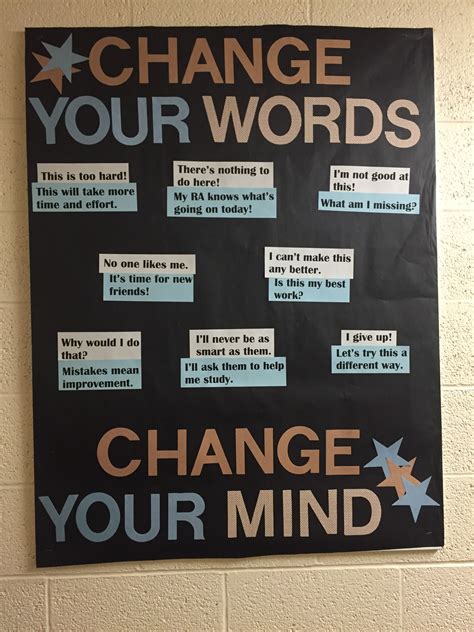 CHANGE
YOUR WORDS
This is too hard!
This will take more
time and effort.
There's nothing to
do here!
My RA knows what's
going on today!
I'm not good at
this!
What am I missing?
No one likes me.
It's time for new
friends!
I can't make this
any better.
Is this my best
work?
Why would I do
that?
Mistakes mean
improvement.
I'll never be as
smart as them.
I'll ask them to help
me study.
I give up!
Let's try this a
different way.
CHANGE
YOUR MIND